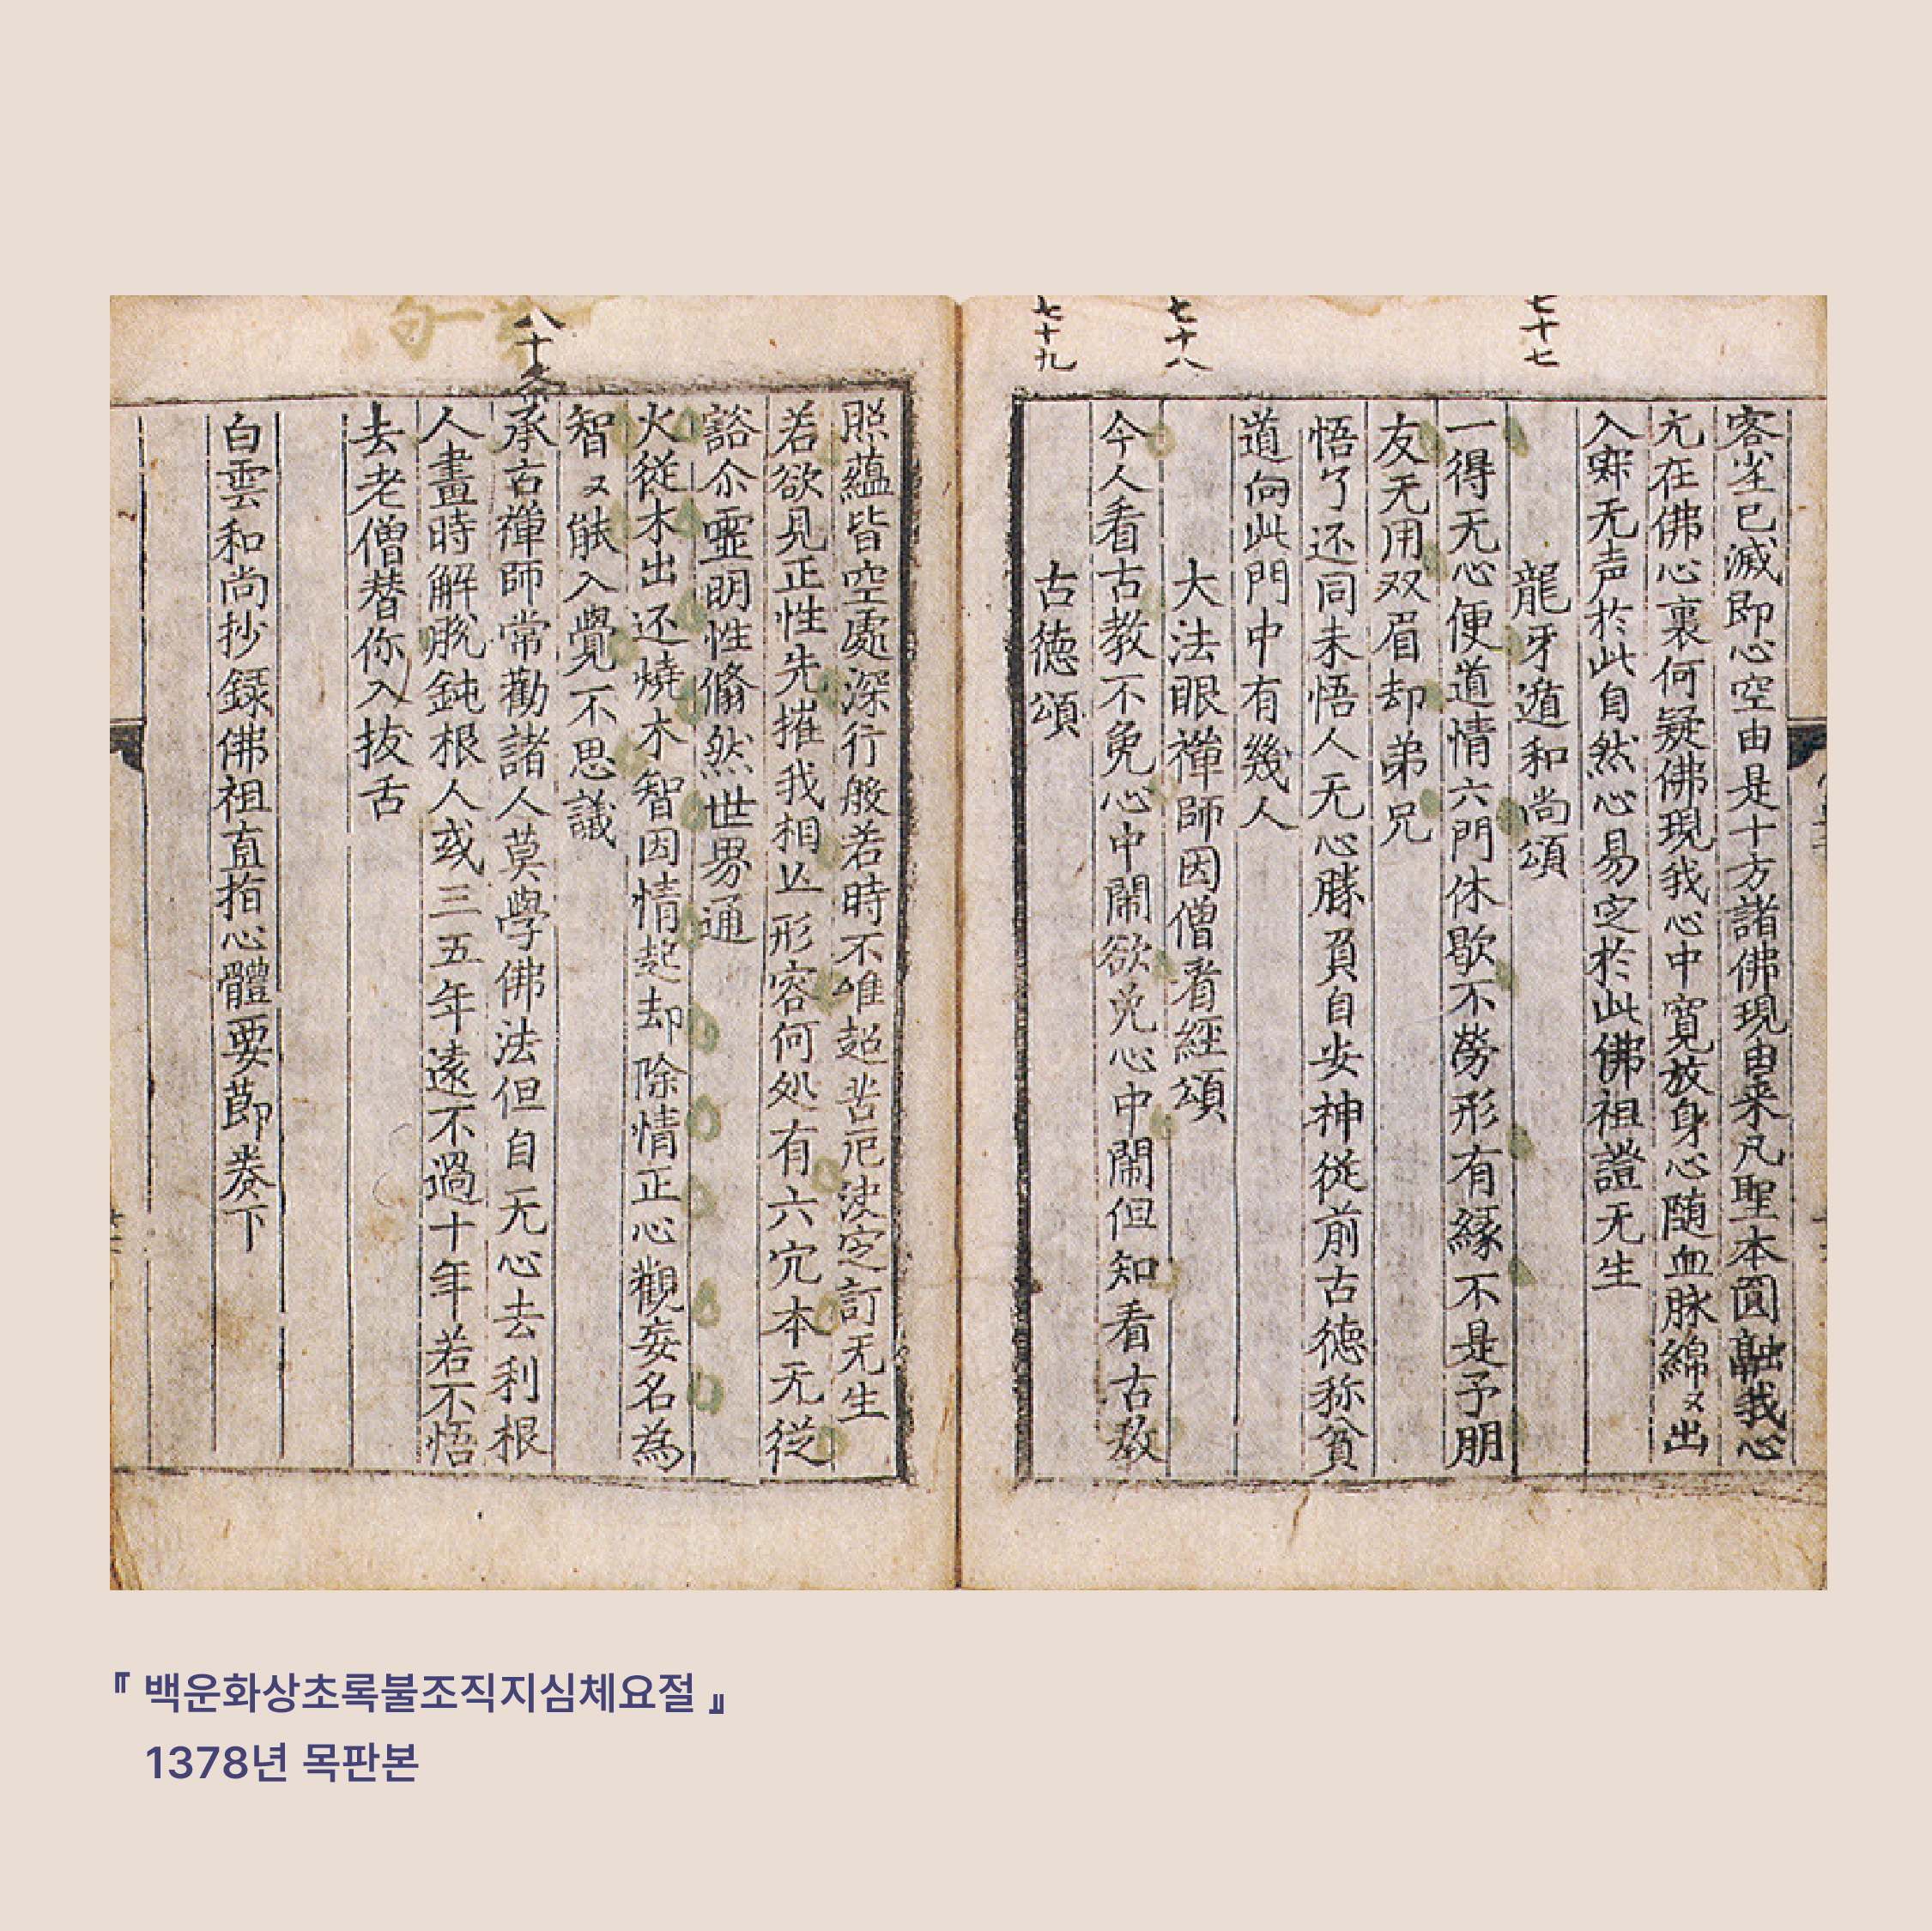 七十七
七十八
七十九
客尘已滅即心空由是十方諸佛現由来凡聖本圓融我心
元在佛心裏何疑佛現我心中寛放身心随血脉綿〻出
入寐无声於此自然心易㝎於此佛祖證无生
龍牙遁和尚頌
一得无心便道情六門休歇不勞形有緣不是予朋
友无用双眉却弟兄
悟了还同未悟人无心勝負自安神從前古徳称貧
道向此門中有幾人
大法眼禪師因僧看經頌
今人看古教不免心中鬧欲免心中鬧但知看古教
古徳頌
八十
照蘊皆空處深行般若時不唯超苦厄決㝎訂无生
若欲見正性先摧我相丘形容何処有六宂本无從
豁尒霊明性翛然世界通
火從木出还燒木智因情起却除情正心觀妄名為
智〻能入覺不思議
承古禪師常勸諸人莫學佛法但自无心去利根
人畫時解脱鈍根人或三五年遠不過十年若不悟
去老僧替你入拔舌
白雲和尚抄録佛祖直指心體要莭卷下
『 백운화상초록불조직지심체요절 』
1378년 목판본